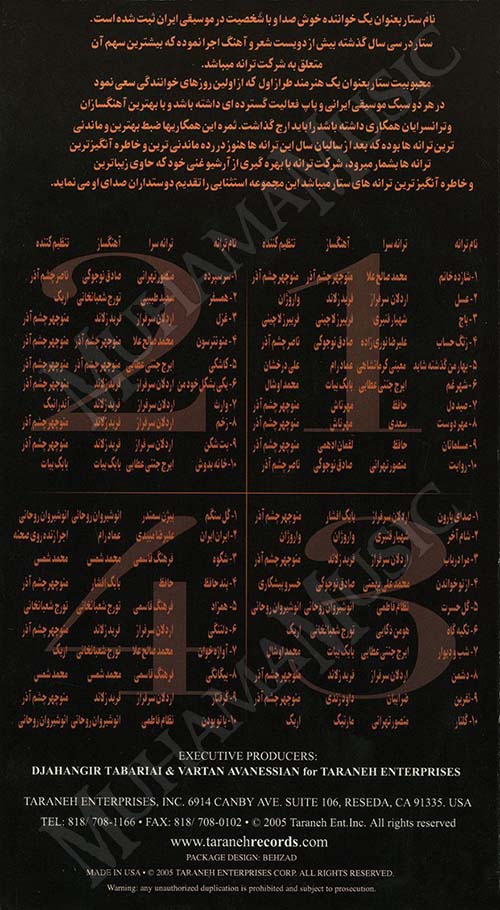 نام ستار بعنوان یک خواننده خوش صدا و با شخصیت در موسیقی ایران ثبت شده است.
ستار در سی سال گذشته بیش از دویست شعر و آهنگ اجرا نموده که بیشترین سهم آن
متعلق به شرکت ترانه میباشد.
محبوبیت ستار بعنوان یک هنرمند طراز اول که از اولین روزهای خوانندگی سعی نمود
در هر دو سبک موسیقی ایرانی و پاپ فعالیت گسترده ای داشته باشد و با بهترین آهنگسازان
و ترانسرایان همکاری داشته باشد را باید ارج گذاشت. ثمره این همکاریها ضبط بهترین و ماندنی
ترین ترانه ها بوده که بعد از سالیان سال این ترانه ها هنوز در رده ماندنی ترین و خاطره آنگیز ترین
ترانه ها بشمار میرود، شرکت ترانه با بهره گیری از آرشیو غنی خود که حاوی زیباترین
و خاطره آنگیز ترین ترانه های ستار میباشد این مجموعه استثنایی را تقدیم دوستداران صدای او می نماید.
1
نام ترانه ترانه سرا آهنگساز تنظیم کننده
۱- شازده خانم محمد صالح علا منوچهر چشم آذر منوچهر چشم آذر
۲- عسل اردلان سرفراز فرید زلاند واروژان
۳- باج شهیار قنبری فریبرز لاچینی فریبرز لاچینی
۴- زنگ حساب علیرضا نوری زاده صادق نوجوکی ناصر چشم آذر
۵- بهار من گذشته شاید معینی کرمانشاهی عماد رام علی درخشان
۶- شهر غم ایرج جنتی عطایی بابک بیات محمد اوشال
۷- صید دل حافظ مهرتاش منوچهر چشم آذر
۸- مهر دوست سعدی مهرتاش منوچهر چشم آذر
۹- مسلمانان حافظ لقمان ادهمی منوچهر چشم آذر
۱۰- روایت منصور تهرانی صادق نوجوکی ناصر چشم آذر
2
نام ترانه ترانه سرا آهنگساز تنظیم کننده
۱- سرسپرده منصور تهرانی صادق نوجوکی ناصر چشم آذر
۲- همسفر تورج شعبانخانی اریک
۳- غزل اردلان سرفراز فرید زلاند منوچهر چشم آذر
۴- منو نترسون محمد صالح علا منوچهر چشم آذر منوچهر چشم آذر
۵- کاشکی ایرج جنتی عطایی صادق نوجوکی منوچهر چشم آذر
۶- یکی شکل خود من اردلان سرفراز فرید زلاند منوچهر چشم آذر
۷- وارث اردلان سرفراز فرید زلاند
۸- زخم اردلان سرفراز فرید زلاند منوچهر چشم آذر
۹- بت شکن اردلان سرفراز فرید زلاند منوچهر چشم آذر
۱۰- خانه بدوش ایرج جنتی عطایی بابک بیات بابک بیات
3
۱- صدای بارون اردلان سرفراز بابک افشار منوچهر چشم آذر
۲- شام آخر شهیار قنبری واروژان واروژان
۳- مرا دریاب اردلان سرفراز فرید زلاند منوچهر چشم آذر
۴- از نو خواندن محمد علی صادق نوجوکی
۵- گل حسرت نظام فاطمی انوشیروان روحانی انوشیروان روحانی
۶- تکیه گاه هومن ذکایی تورج شعبانخانی اریک
۷- شب و دیوار ایرج جنتی عطایی بابک بیات محمد اوشال
۸- دشمن اردلان سرفراز فرید زلاند منوچهر چشم آذر
۹- نفرین منوچهر چشم آذر
۱۰- گلنار منصور تهرانی مارتیک اریک
4
۱- گل سنگم بیژن سمندر انوشیروان روحانی انوشیروان روحانی
۲- ایران ایران علیرضا میبدی عماد رام اجرا زنده روی صحنه
۳- شکوه فرهنگ قاسمی محمد شمس محمد شمس
۴- پند حافظ حافظ بابک افشار منوچهر چشم آذر
۵- همزاد فرهنگ قاسمی تورج شعبانخانی تورج شعبانخانی
۶- دلتنگی اردلان سرفراز فرید زلاند منوچهر چشم آذر
۷- آوازه خوان محمد صالح علا تورج شعبانخانی اریک
۸- بیگانگی فرهنگ قاسمی محمد شمس محمد شمس
۹- کوچ اردلان سرفراز فرید زلاند منوچهر چشم آذر
۱۰- با تو بودن نظام فاطمی انوشیروان روحانی انوشیروان روحانی
EXECUTIVE PRODUCERS:
DJAHANGIR TABARIAI & VARTAN AVANESSIAN for TARANEH ENTERPRISES
TARANEH ENTERPRISES, INC. 6914 CANBY AVE. SUITE 106, RESEDA, CA 91335. USA
TEL: 818/ 708-1166 • FAX: 818/ 708-0102 • © 2005 Taraneh Ent.Inc. All rights reserved
www.taranehrecords.com
PACKAGE DESIGN: BEHZAD
MADE IN USA • © 2005 TARANEH ENTERPRISES CORP. ALL RIGHTS RESERVED.
Warning: any unauthorized duplication is prohibited and subject to prosecution.
MUHAMAMUSIC
MUHAMAMUSIC
MUHAMAMUSIC